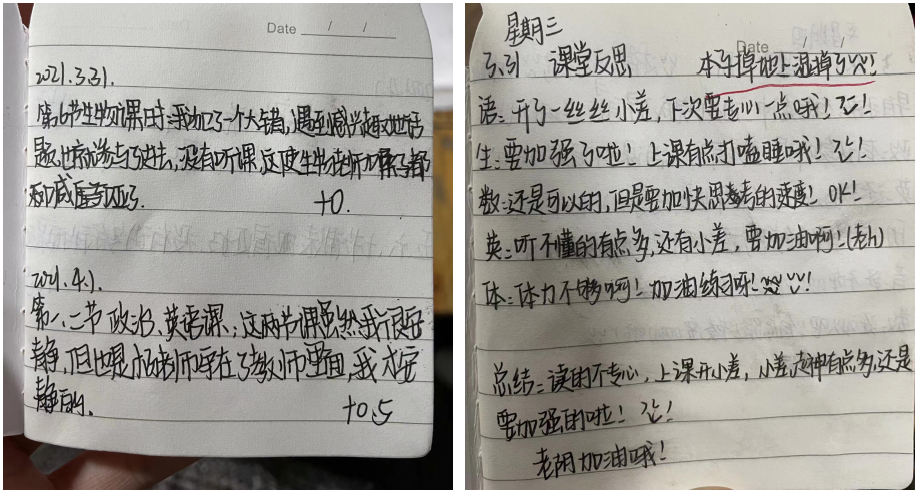 Date / /
2021.3.31.
第6节生物课时,我加了一个大错,遇到感兴趣的话
题,也就参与了进去,没有听课,这使生物老师
+0.
2021.4.1.
第一、二节政治、英语课,这两节课虽然我很安
静,但也是杨老师写在了教师里面,我才安
静的.
+0.5
星期三
Date / /
3.31 课堂反思 本子掉地上湿掉了!
语:开了一丝丝小差,下次要专心一点哦!
生:要加强了啦!上课有点打嗑睡哦!
数:还是可以的,但是要加快思考的速度!OK!
英:听不懂的有点多,还有小差,要加油啊!
体:体力不够啊!加油练习呀!
总结:读的不专心,上课开小差,小差走神有点多,还是
要加强的啦!
老阴加油哦!